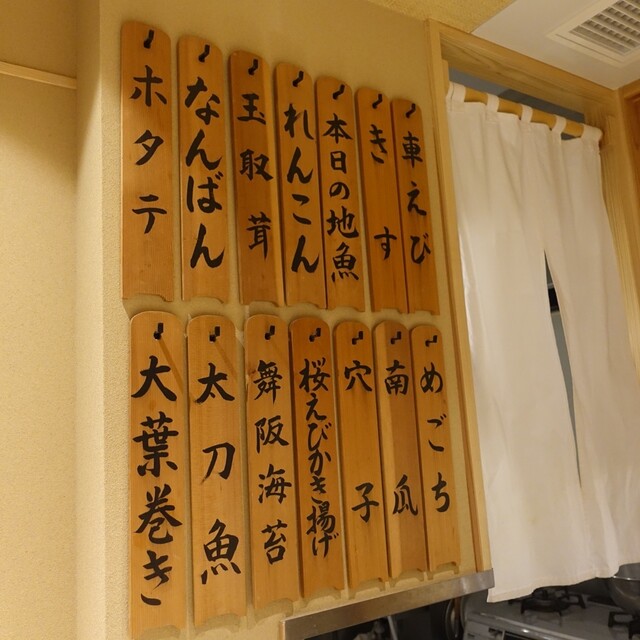 車えび
きす
本日の地魚
れんこん
玉取茸
なんばん
ホタテ
めごち
南瓜
穴子
桜えびかき揚げ
舞阪海苔
太刀魚
大葉巻き